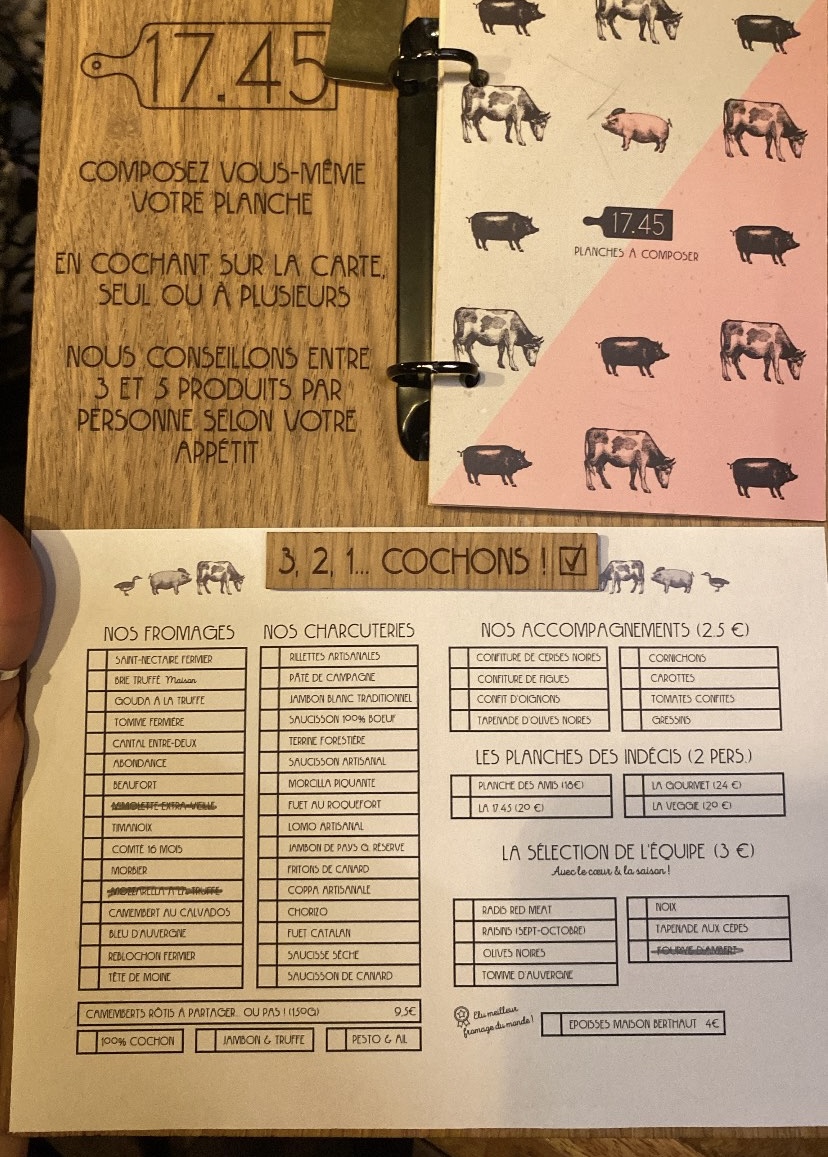 17.45
COMPOSEZ VOUS-MÊME
VOTRE PLANCHE
EN COCHANT SUR LA CARTE,
SEUL OU À PLUSIEURS
NOUS CONSEILLONS ENTRE
3 ET 5 PRODUITS PAR
PERSONNE SELON VOTRE
APPÉTIT
17.45
PLANCHES À COMPOSER
3, 2, 1... COCHONS !
NOS FROMAGES
SAINT-NECTAIRE FERMIER
BRIE TRUFFÉ Maison
GOUDA À LA TRUFFE
TOMME FERMIÈRE
CANTAL ENTRE-DEUX
ABONDANCE
BEAUFORT
MIMOLETTE EXTRA-VIEILLE
TIMANOIX
COMTÉ 16 MOIS
MORBIER
MOZZARELLA À LA TRUFFE
CAMEMBERT AU CALVADOS
BLEU D'AUVERGNE
REBLOCHON FERMIER
TÊTE DE MOINE
NOS CHARCUTERIES
RILLETTES ARTISANALES
PÂTÉ DE CAMPAGNE
JAMBON BLANC TRADITIONNEL
SAUCISSON 100% BOEUF
TERRINE FORESTIÈRE
SAUCISSON ARTISANAL
MORCILLA PIQUANTE
FUET AU ROQUEFORT
LOMO ARTISANAL
JAMBON DE PAYS G. RÉSERVE
FRITONS DE CANARD
COPPA ARTISANALE
CHORIZO
FUET CATALAN
SAUCISSE SÈCHE
SAUCISSON DE CANARD
CAMEMBERTS RÔTIS À PARTAGER... OU PAS ! (150G) 9.5€
100% COCHON
JAMBON & TRUFFE
PESTO & AIL
NOS ACCOMPAGNEMENTS (2.5 €)
CONFITURE DE CERISES NOIRES
CONFITURE DE FIGUES
CONFIT D'OIGNONS
TAPENADE D'OLIVES NOIRES
CORNICHONS
CAROTTES
TOMATES CONFITES
GRESSINS
LES PLANCHES DES INDÉCIS (2 PERS.)
PLANCHE DES AMIS (18€)
LA 17.45 (20 €)
LA GOURMET (24 €)
LA VEGGIE (20 €)
LA SÉLECTION DE L'ÉQUIPE (3 €)
Avec le cœur & la saison !
RADIS RED MEAT
RAISINS (SEPT-OCTOBRE)
OLIVES NOIRES
TOMME D'AUVERGNE
NOIX
TAPENADE AUX CÈPES
FOURME D'AMBERT
Elu meilleur
fromage du monde !
EPOISSES MAISON BERTHAUT 4€